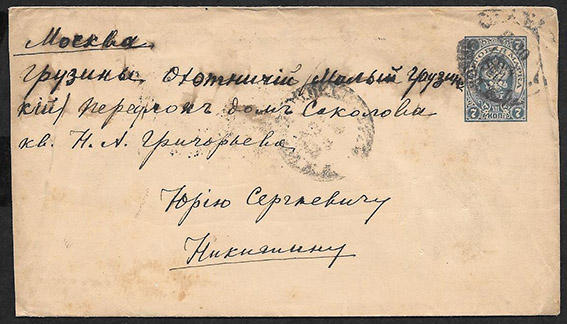 Москва
Грузины Охотничій Малый Грузин
кій переулокъ домъ Соколова
кв. Н. А. Григорьева
Юрію Сергѣевичу
Никитину